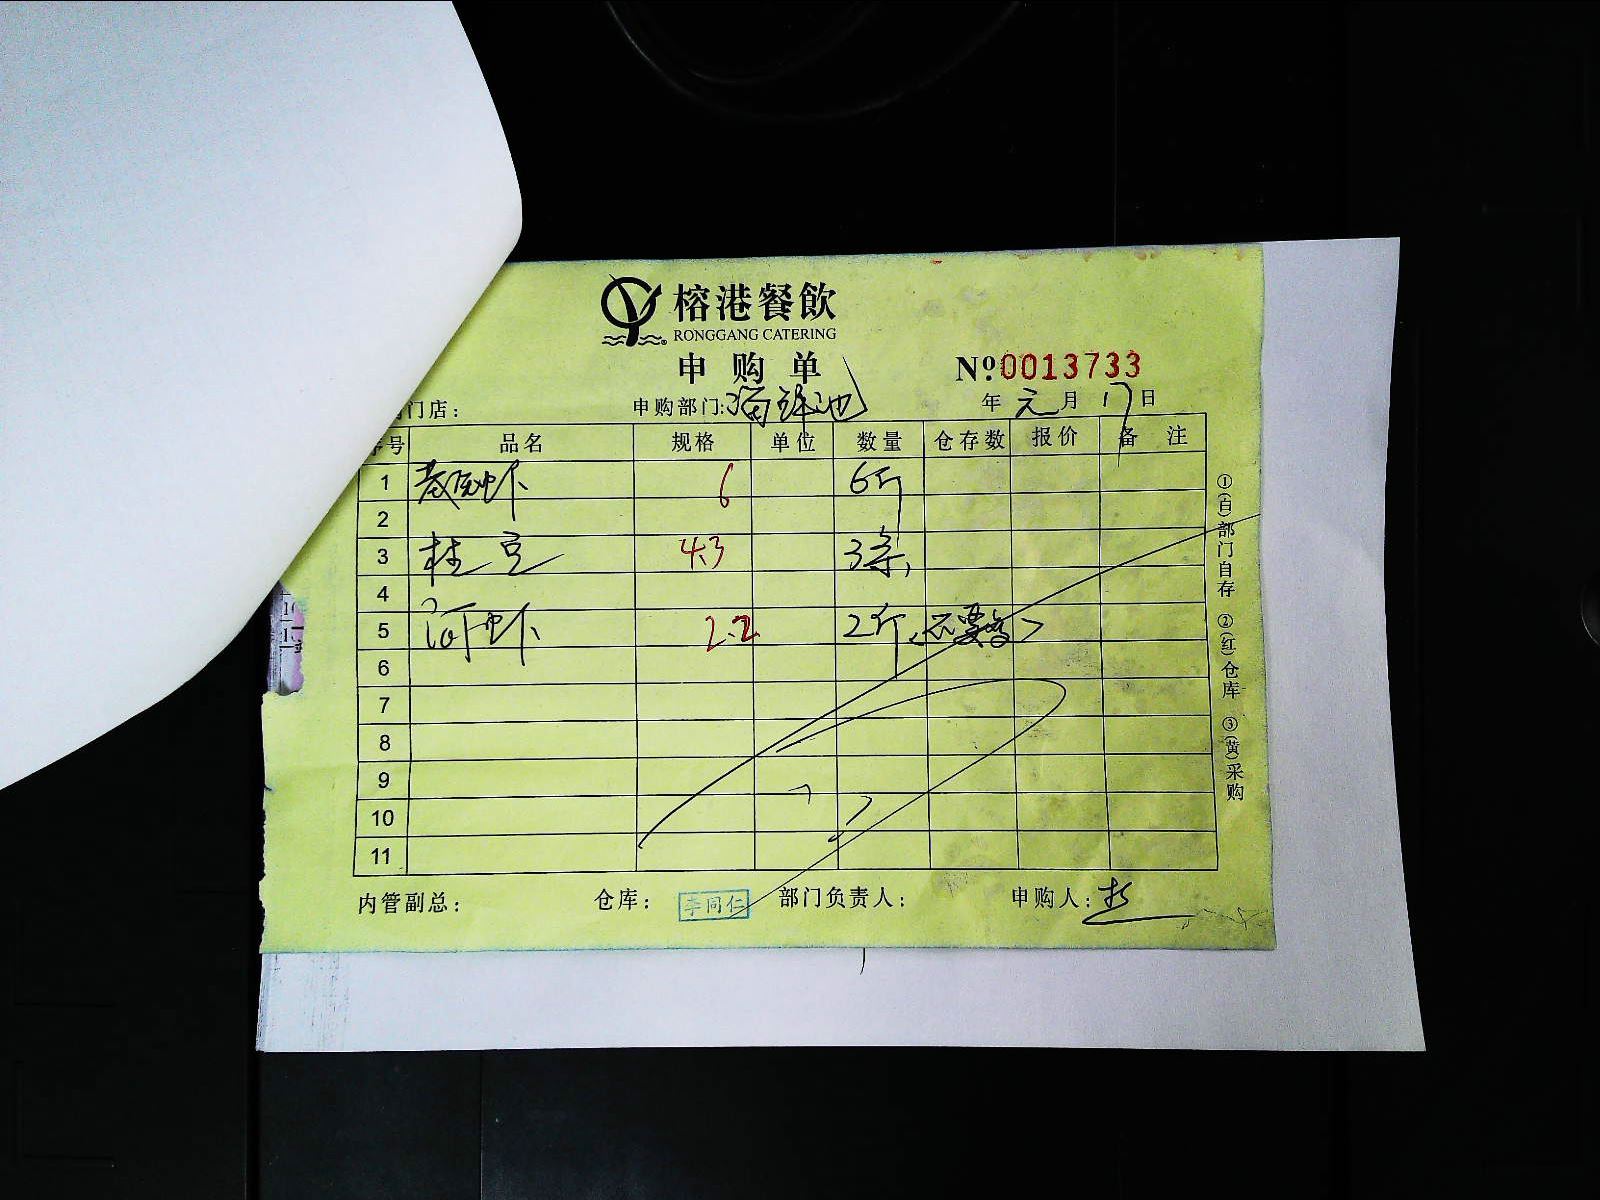 榕港餐飲
RONGGANG CATERING
申购单 Nº0013733
门店： 申购部门:海鲜池 年 元月 17日
序号 品名 规格 单位 数量 仓存数 报价 备注
1 基围虾 6 6斤
2
3 桂鱼 4.3 3条
4
5 河虾 2.2 2斤
6
7
8
9
10
11
内管副总： 仓库： 李同仁 部门负责人： 申购人：
①(白)部门自存 ②(红)仓库 ③(黄)采购